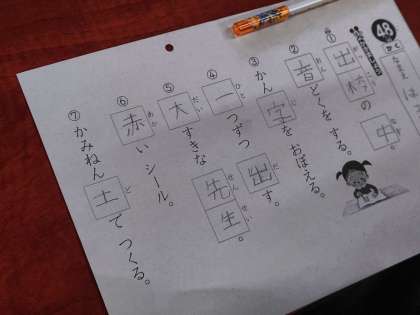 48 かく
なまえ
① 出 の 中
② 音どくを する。
③ かん字を おぼえる。
④ 一つずつ 出す。
⑤ 大すきな 先生。
⑥ 赤い シール。
⑦ かみねん土で つくる。